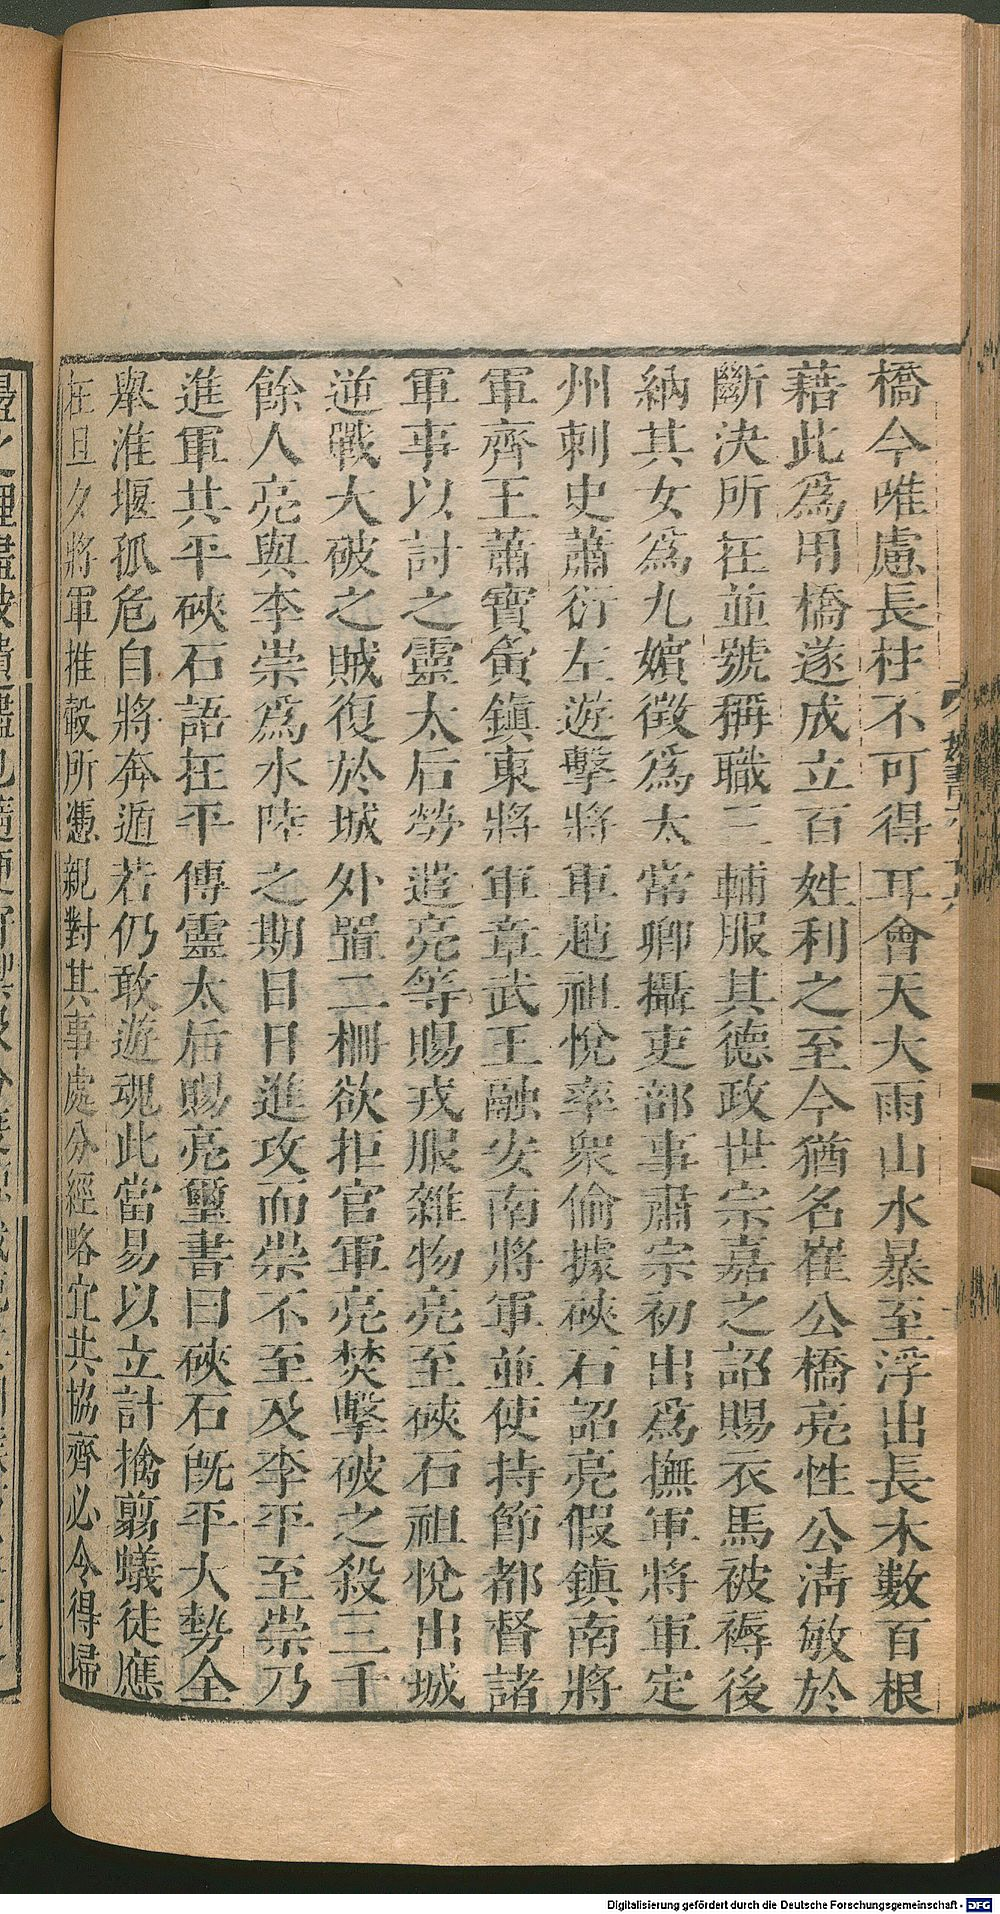 橋今唯慮長柱不可得耳會天大雨山水暴至浮出長木數百根
藉此爲用橋遂成立百姓利之至今猶名崔公橋亮性公淸敏於
斷決所在並號稱職三輔服其德政世宗嘉之詔賜衣馬被褥後
納其女爲九嬪徵爲太常卿攝吏部事肅宗初出爲撫軍將軍定
州刺史蕭衍左遊擊將軍趙祖悅率衆偷據硤石詔亮假鎭南將
軍齊王蕭寶夤鎭東將軍章武王融安南將軍並使持節都督諸
軍事以討之靈太后勞遣亮等賜戎服雜物亮至硤石祖悅出城
逆戰大破之賊復於城外置二柵欲拒官軍亮焚擊破之殺三千
餘人亮與李崇爲水陸之期日日進攻而崇不至及李平至崇乃
進軍共平硤石語在平傳靈太后賜亮璽書曰硤石旣平大勢全
舉淮堰孤危自將奔遁若仍敢遊魂此當易以立計擒翦蟻徒應
在旦夕將軍推轂所憑親對其事處分經略宜共協齊必令得埽
Digitalisierung gefördert durch die Deutsche Forschungsgemeinschaft - DFG